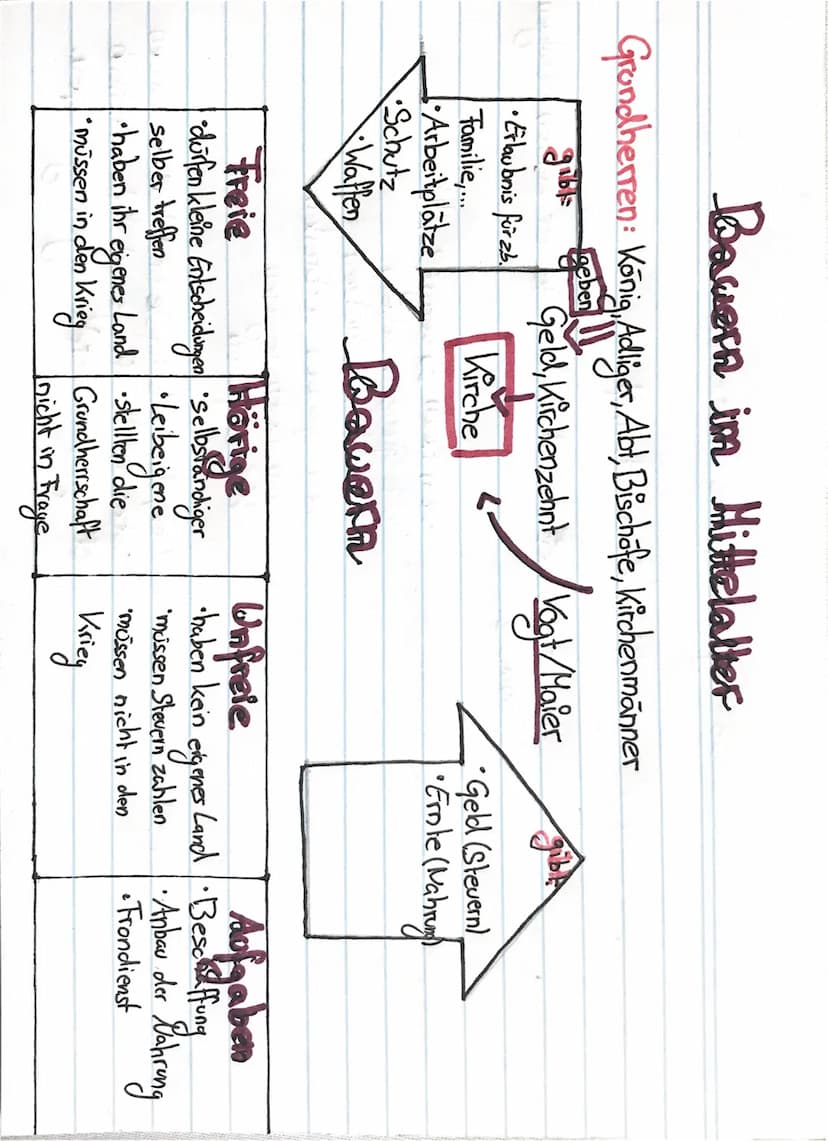 Bauern im Mittelalter
Grundherren: König, Adliger, Abt, Bischöfe, Kirchenmänner
geben
Geld, Kirchenzehnt
Vogt/Maier
Kirche
gibt:
• Erlaubnis für zb.
Familie,...
• Arbeitplätze
• Schutz
• Waffen
gibt:
• Geld (Steuern)
• Ernte (Nahrung)
Bauern
Freie
• dürfen kleine Entscheidungen
selber treffen
• haben ihr eigenes Land
• müssen in den Krieg
Hörige
• selbständiger
• Leibeigene
• stellten die
Grundherrschaft
nicht in Frage
Unfreie
• haben kein eigenes Land
• müssen Steuern zahlen
• müssen nicht in den
Krieg
Aufgaben
• Beschaffung
• Anbau der Nahrung
• Frondienst